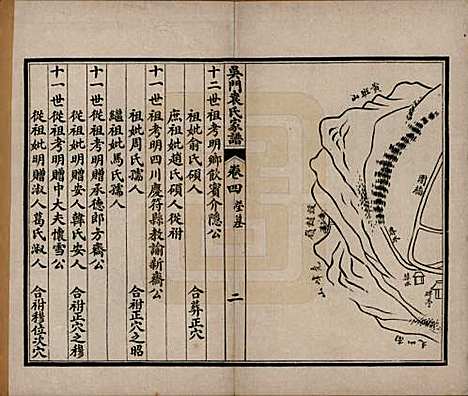 吳門袁氏家譜
卷四 塋墓
二
十二世祖考明鄉飲賓介隱公
祖妣俞氏碩人 合葬正穴
庶祖妣趙氏碩人從祔
十一世祖考明四川慶符縣教諭新齋公
祖妣周氏孺人 合祔正穴之昭
繼祖妣馬氏孺人
十一世從祖考明贈承德郎方齋公
從祖妣明贈安人韓氏安人 合祔正穴之穆
十一世從祖考明贈中大夫懷雪公
從祖妣明贈淑人葛氏淑人 合祔穆位次穴